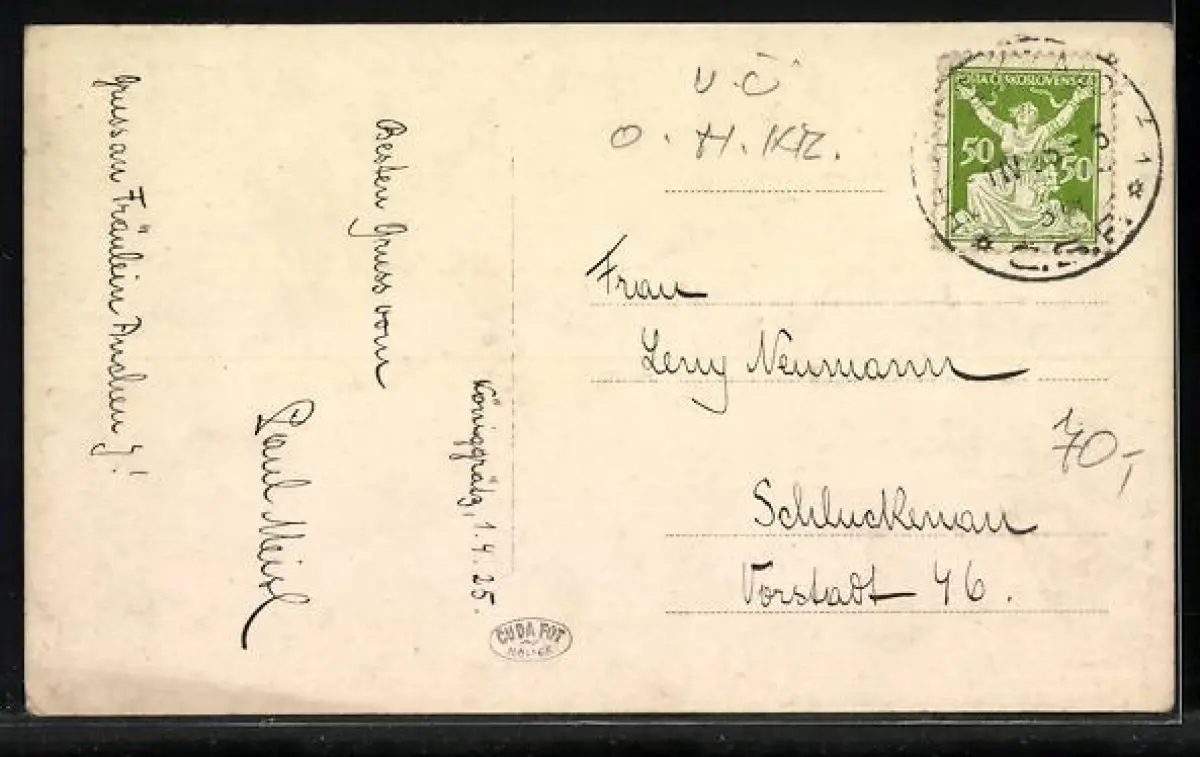 Königgrätz, 1.4.25.
Besten Gruss vom
Paul Meisl
Gruss an Fräulein Annchen
V.Č
O. H. Kr.
POŠTA ČESKOSLOVENSKÁ
50 50
Frau
Leny Neumann
Schluckenau
Vorstadt 46.
70,-
ČUDA FOT
HOLICE